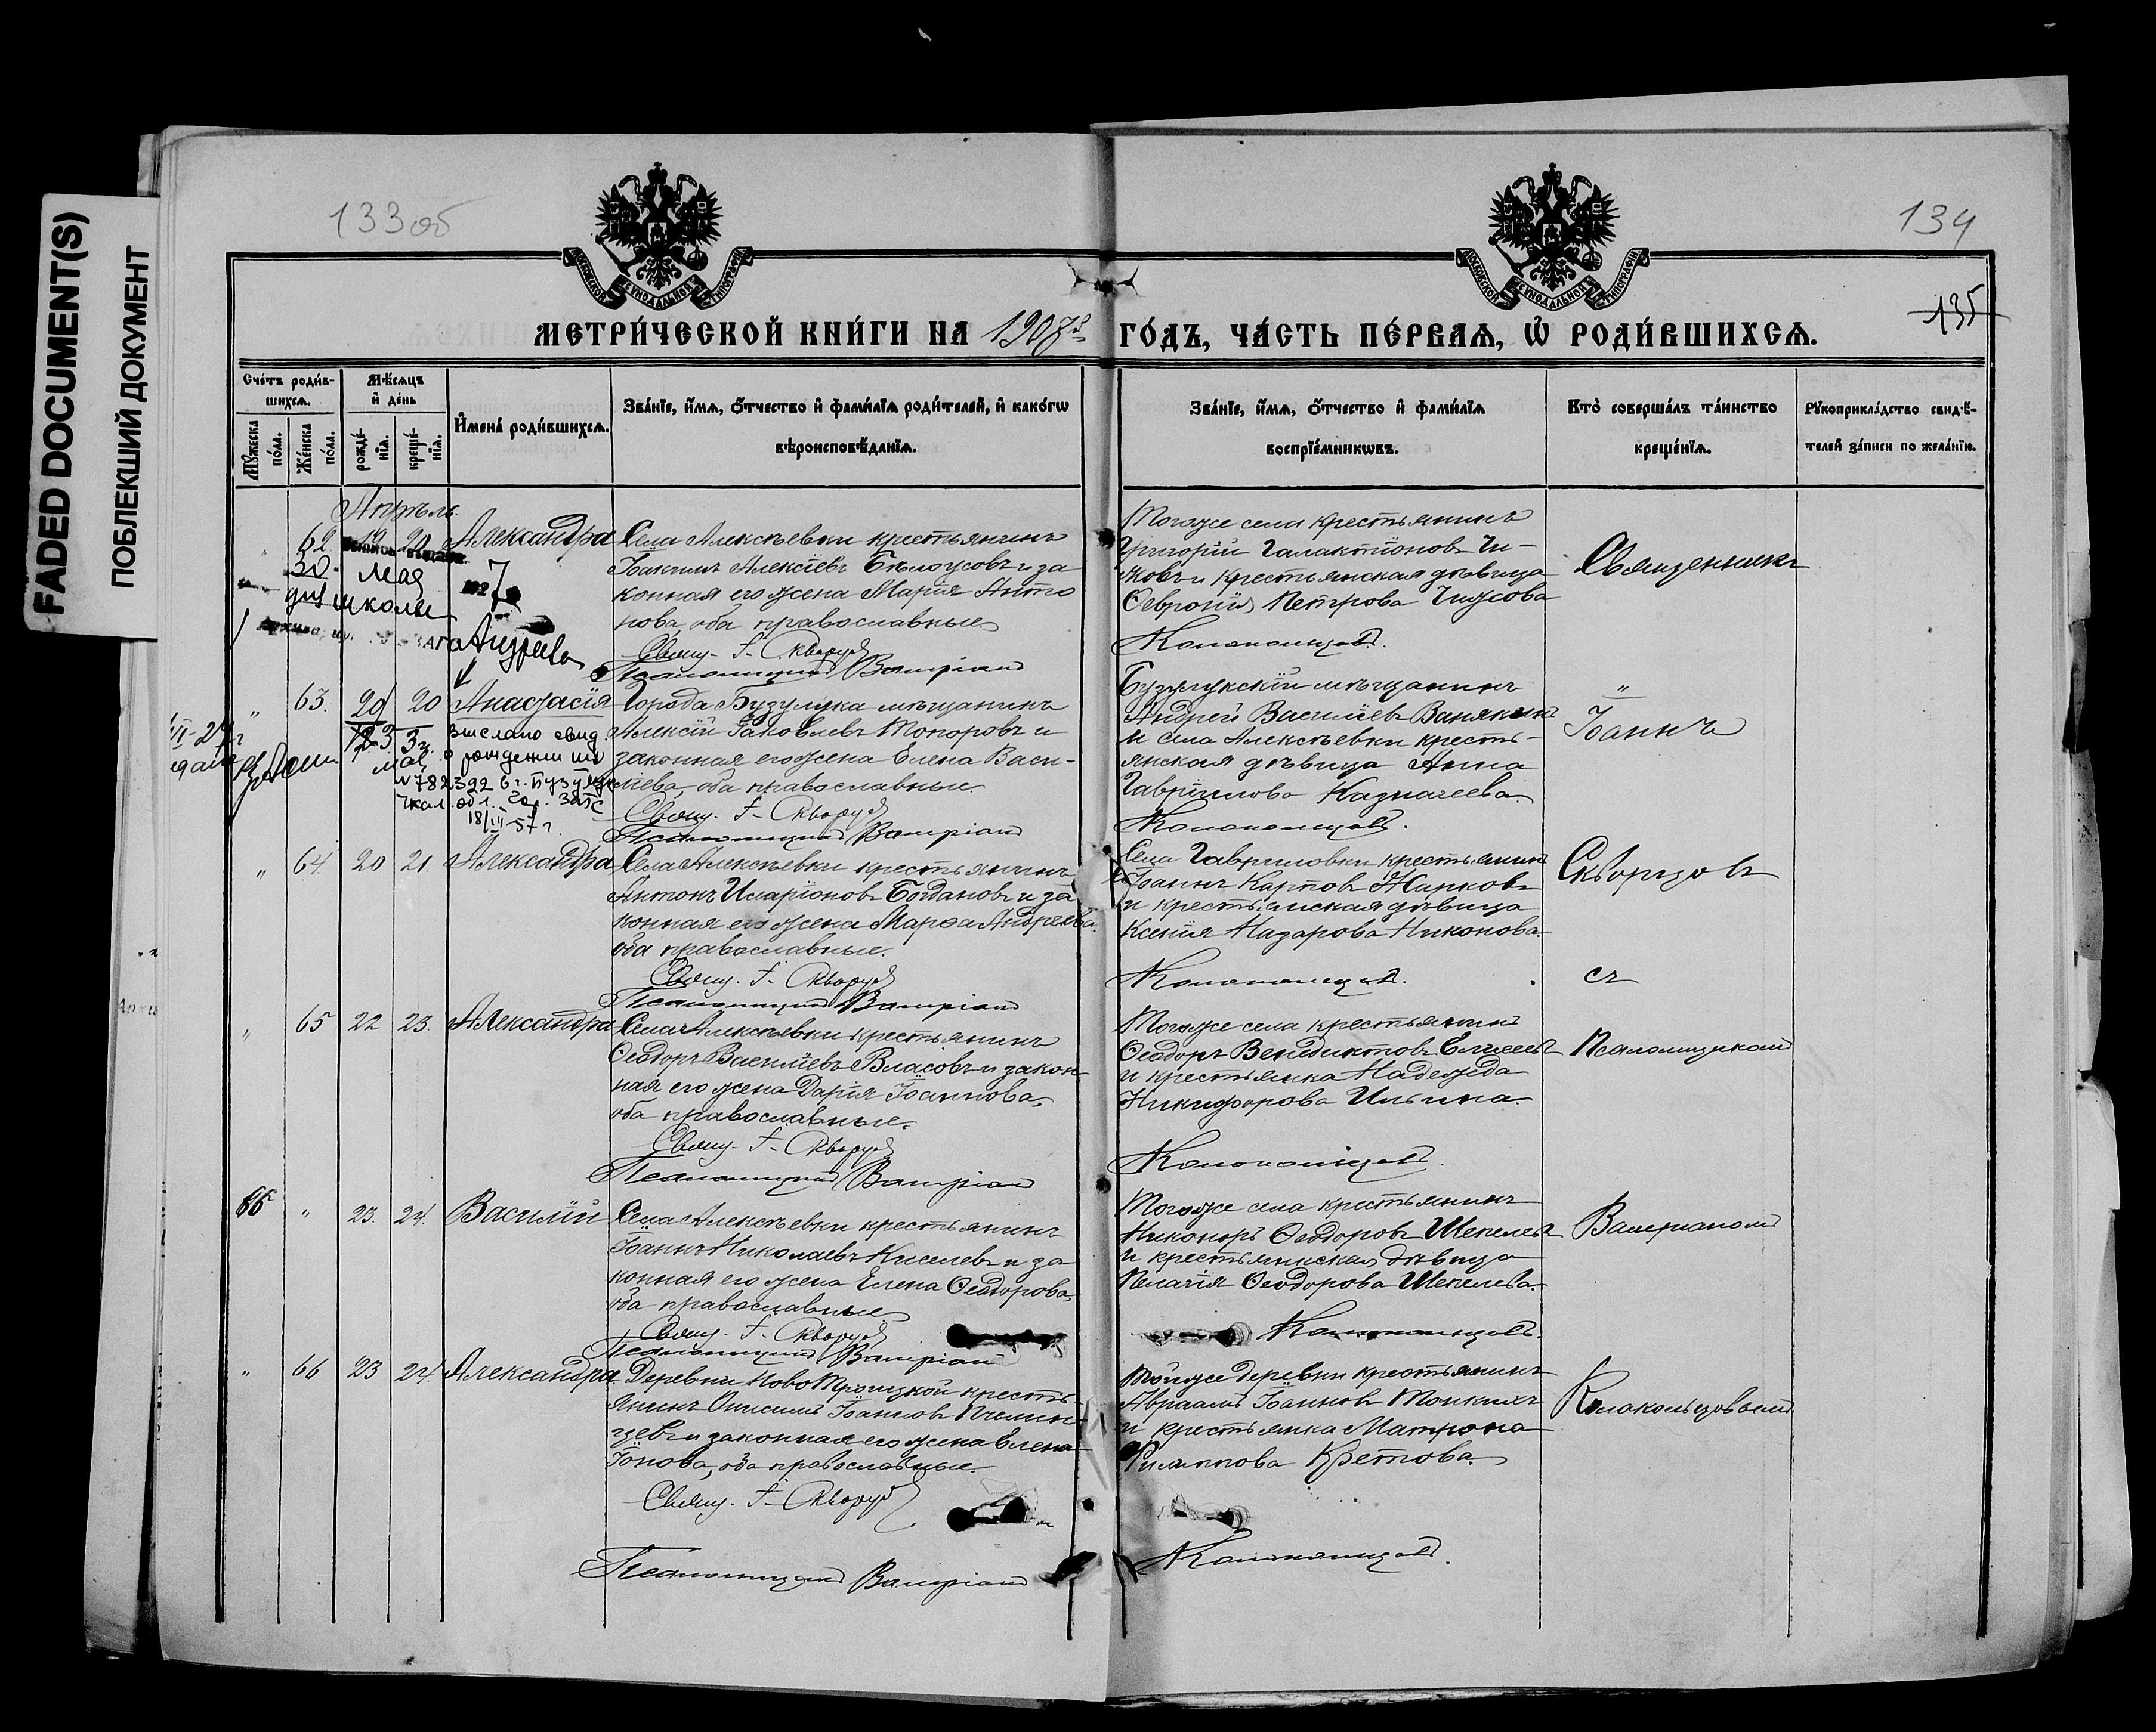 FADED DOCUMENT(S)
ПОБЛЕКШИЙ ДОКУМЕНТ
133об
134
135
МОСКОВСКОЙ СѴНОДАЛЬНОЙ ТИПОГРАФІИ
МОСКОВСКОЙ СѴНОДАЛЬНОЙ ТИПОГРАФІИ
МЕТРИ́ЧЕСКОЙ КНИ́ГИ НА 1907й ГО́ДЪ, ЧА́СТЬ ПЕ́РВАѦ, Ѡ҆ РОДИ́ВШИХСѦ.
Сче́тъ роди́в-
шихсѧ.
Мꙋ́жеска по́ла.
Же́нска по́ла.
Мѣ́сѧцъ
и҆ де́нь
рожде́-
нїѧ.
креще́-
нїѧ.
И҆мена̀ роди́вшихсѧ.
Зва́нїе, и҆́мѧ, ѻ҆́тчество и҆ фами́лїѧ роди́телей, и҆ како́гѡ
вѣроисповѣ́данїѧ.
Зва́нїе, и҆́мѧ, ѻ҆́тчество и҆ фами́лїѧ
воспрїе́мникѡвъ.
Кто̀ соверша́лъ та́инство
креще́нїѧ.
Рꙋкоприкла́дство свидѣ́-
телей за́писи по жела́нїю.
Апрѣль.
" 62 19 20 Александра
Села Алексѣевки крестьянинъ
Іоакимъ Алексіевъ Бѣлоусовъ и за
конная его жена Марія Анто
нова, оба православные
Свящ. І. Скворцов
Псаломщикъ Валеріанъ
Тогоже села крестьянинъ
Григорій Галактіоновъ Чи-
жовъ и крестьянская дѣвица
Ѳевронія Петрова Чижова
Колокольцовъ.
Священникъ
30 мая 1927
для школы
" 63. 20 20 Анастасія
Города Бузулука мѣщанинъ
Алексій Іаковлевъ Топоровъ и
законная его жена Елена Васи-
ліева, оба православные.
Свящ. І. Скворцов
Псаломщикъ Валеріанъ
Бузулукскій мѣщанинъ
Андрей Василіевъ Ванякинъ
и села Алексѣевки кресть-
янская дѣвица Анна
Гавріилова Казначеева.
Колокольцовъ.
"
Іоаннъ
3 3
мая
выслано свид
о рождении
N 782392 в г. Бузулук
Чкал. обл. Гор. ЗАГС
18/III-57 г.
" 64. 20 21. Александра
Села Алексѣевки крестьянинъ
Антонъ Иларіоновъ Богдановъ и за
конная его жена Марѳа Андреева
оба православные.
Свящ. І. Скворцов
Псаломщикъ Валеріанъ
Села Гавриловки крестьянинъ
Іоаннъ Карповъ Жарковъ
и крестьянская дѣвица
Ксенія Назарова Никонова.
Колокольцовъ.
Скворцовъ
съ
" 65 22 23. Александра
Села Алексѣевки крестьянинъ
Ѳеодоръ Василіевъ Власовъ и закон
ная его жена Дарія Іоаннова,
оба православные.
Свящ. І. Скворцов
Псаломщикъ Валеріанъ
Тогоже села крестьянинъ
Ѳеодоръ Венедиктовъ Елисеевъ
и крестьянка Надежда
Никифорова Ильина
Колокольцовъ.
Псаломщикомъ
66 " 23. 24. Василій
Села Алексѣевки крестьянинъ
Іоаннъ Николаевъ Киселевъ и за
конная его жена Елена Ѳеодорова,
оба православные
Свящ. І. Скворцов
Псаломщикъ Валеріанъ
Тогоже села крестьянинъ
Никоноръ Ѳеодоровъ Шекелевъ
и крестьянская дѣвица
Пелагія Ѳеодорова Шекелева.
Колокольцовъ.
Валеріаномъ
" 66 23 24. Александра
Деревни НовоТроицкой кресть-
янинъ Онисимъ Іоанновъ Пчелин-
цевъ и законная его жена Елена
Іонова, оба православные.
Свящ. І. Скворцов
Псаломщикъ Валеріанъ
Тойже деревни крестьянинъ
Авраамъ Іоанновъ Тонкихъ
и крестьянка Матрона
Филиппова Кретова.
Колокольцовъ.
Колокольцовымъ.